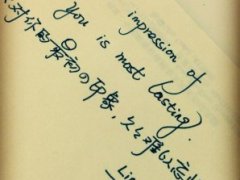 impression of
you is most lasting.
对你的最初の印象,久久难以忘
Lin